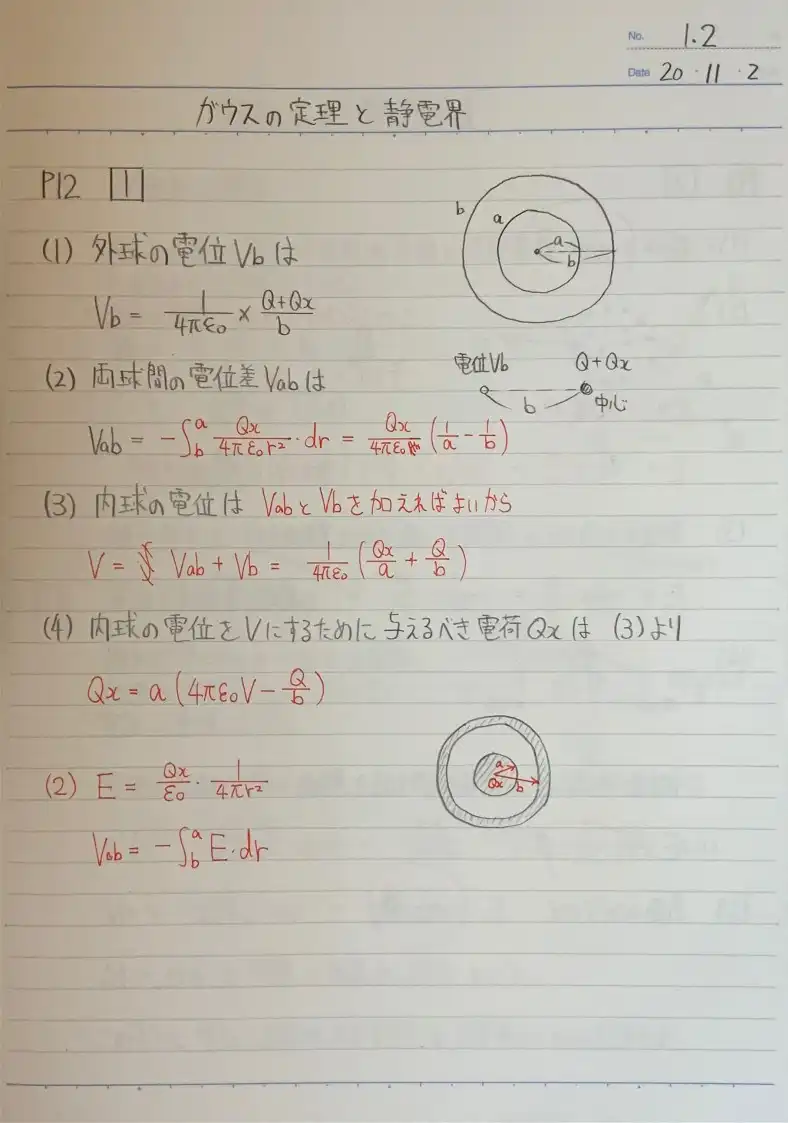 No. 1.2
Date 20・11・2
ガウスの定理と静電界
P12 1
b a a b
(1) 外球の電位Vbは
Vb = 1/4πε₀ × Q+Qx/b
電位Vb Q+Qx
b 中心
(2) 両球間の電位差Vabは
Vab = -∫_b^a Qx/4πε₀r²・dr = Qx/4πε₀ (1/a - 1/b)
(3) 内球の電位は VabとVbを加えればよいから
V = Vab + Vb = 1/4πε₀ (Qx/a + Q/b)
(4) 内球の電位をVにするために与えるべき電荷Qxは (3)より
Qx = a (4πε₀V - Q/b)
a Qx b
(2) E = Qx/ε₀・1/4πr²
Vab = -∫_b^a E・dr